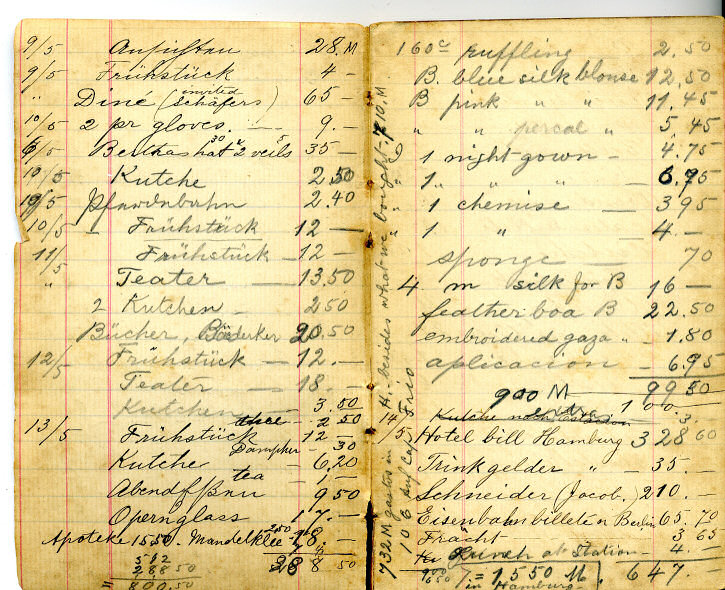 9/5 28. M
9/5 Frühstück 4 –
" Diné (invited Schäfers) 65 –
10/5 2 pr gloves. – 9. –
/5 Berthas hat 30 " 2 veils 5 35 –
10/5 Kutche 2.50
10/5 Pfardnbahn 2.40
10/5 – Frühstück 12 –
11/5 Frühstück – 12 –
" Teater – 13.50
2 Kutchen – 2 50
Bücher, Bäderker 20.50
12/5 Frühstück – 12. –
Teater – 18. –
Kutchen – 3.50
– 2 50
13/5 Frühstück 12 –
Dampher – 30
Kutche – 6.20
tea – 1, –
9 50
Opernglass 17. –
Apoteke 15 50. Mandelklee 2.50 18. –
288 50
512
288 50
800.50
732 M gastos in H. besides what we bought. 710. M.
106 auf Cap Frio
160 ruffling 2.50
B. blue silk blouse 12.50
B pink " " 11.45
" " percal " 5 45
" 1 night gown – 4.75
" 1 " " " – 6.95
" 1 chemise – 3 95
" 1 " – 4. –
sponge – 70
4 m silk for B 16 –
feather boa B 22.50
embroidered gaza " 1.80
aplicacion – 6.95
900 M 99 50
extra 100.
Kutche nach Station 3.
14/5 Hotel bill Hamburg 328 60
Trinkgelder " – 35. –
Schneider (Jacob.) 210. –
Eisenbahnbillete n Berlin 65.70
Fracht – 3 65
Lunch at Station – 4. –
900
650 = 1,550 M. 647. –
in Hamburg